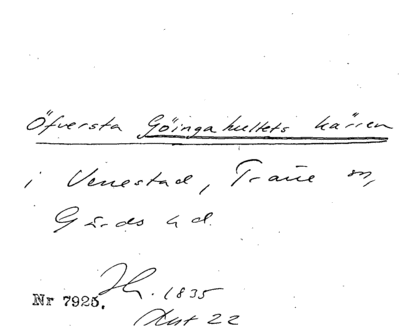 Öfversta Göingahultets kärren
i Venestad, Träne sn,
Gärds hd.
Nr 7925. 1835
Akt 22